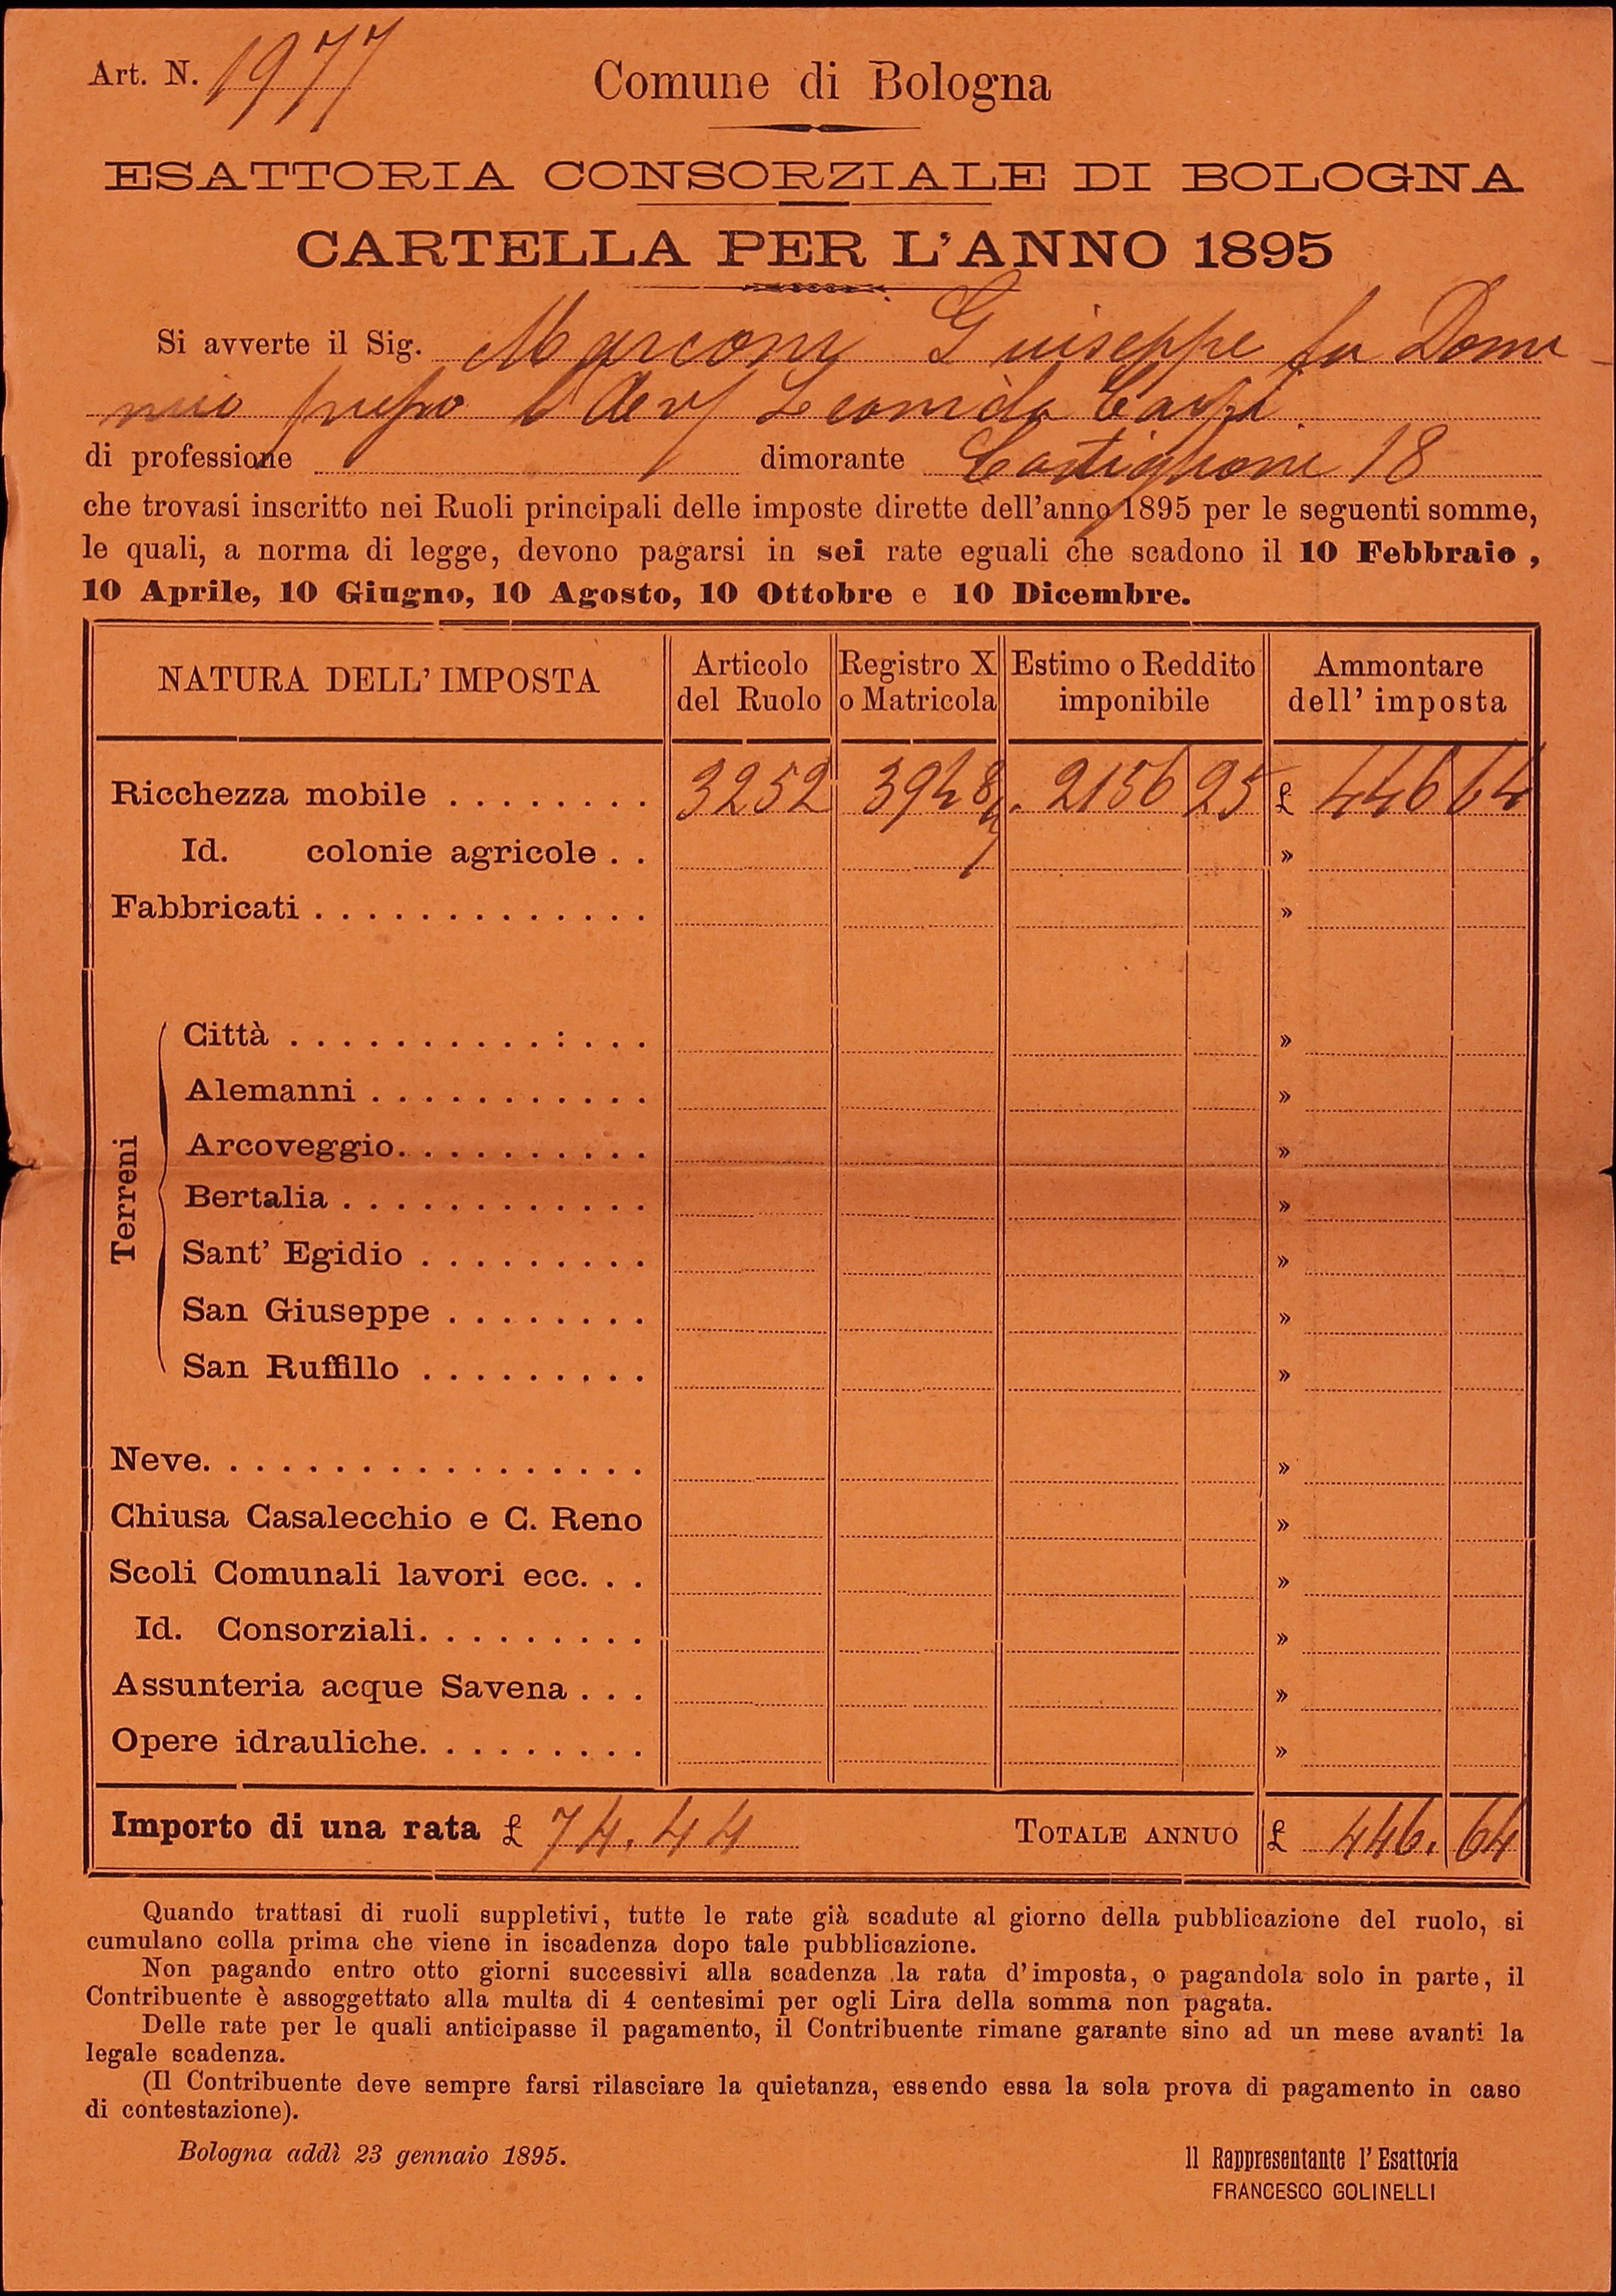 Art. N. 1977
Comune di Bologna
ESATTORIA CONSORZIALE DI BOLOGNA
CARTELLA PER L'ANNO 1895
Si avverte il Sig. Marconi Giuseppe fu Dome-
nico Leonida Carpi
di professione dimorante Castiglione 18
che trovasi inscritto nei Ruoli principali delle imposte dirette dell'anno 1895 per le seguenti somme,
le quali, a norma di legge, devono pagarsi in sei rate eguali che scadono il 10 Febbraio,
10 Aprile, 10 Giugno, 10 Agosto, 10 Ottobre e 10 Dicembre.
NATURA DELL'IMPOSTA Articolo del Ruolo Registro X o Matricola Estimo o Reddito imponibile Ammontare dell' imposta
Ricchezza mobile . . . . . . . . 3252 3948 2156 25 £ 446 64
Id. colonie agricole . . »
Fabbricati . . . . . . . . . . . . . »
Terreni
Città . . . . . . . . . . : . . . »
Alemanni . . . . . . . . . . . »
Arcoveggio. . . . . . . . . . »
Bertalia . . . . . . . . . . . . »
Sant' Egidio . . . . . . . . . »
San Giuseppe . . . . . . . . »
San Ruffillo . . . . . . . . . »
Neve. . . . . . . . . . . . . . . . . »
Chiusa Casalecchio e C. Reno »
Scoli Comunali lavori ecc. . . »
Id. Consorziali. . . . . . . . . »
Assunteria acque Savena . . . »
Opere idrauliche. . . . . . . . . »
Importo di una rata £ 74.44 TOTALE ANNUO £ 446. 64
Quando trattasi di ruoli suppletivi, tutte le rate già scadute al giorno della pubblicazione del ruolo, si
cumulano colla prima che viene in iscadenza dopo tale pubblicazione.
Non pagando entro otto giorni successivi alla scadenza la rata d'imposta, o pagandola solo in parte, il
Contribuente è assoggettato alla multa di 4 centesimi per ogli Lira della somma non pagata.
Delle rate per le quali anticipasse il pagamento, il Contribuente rimane garante sino ad un mese avanti la
legale scadenza.
(Il Contribuente deve sempre farsi rilasciare la quietanza, essendo essa la sola prova di pagamento in caso
di contestazione).
Bologna addì 23 gennaio 1895.
Il Rappresentante l'Esattoria
FRANCESCO GOLINELLI